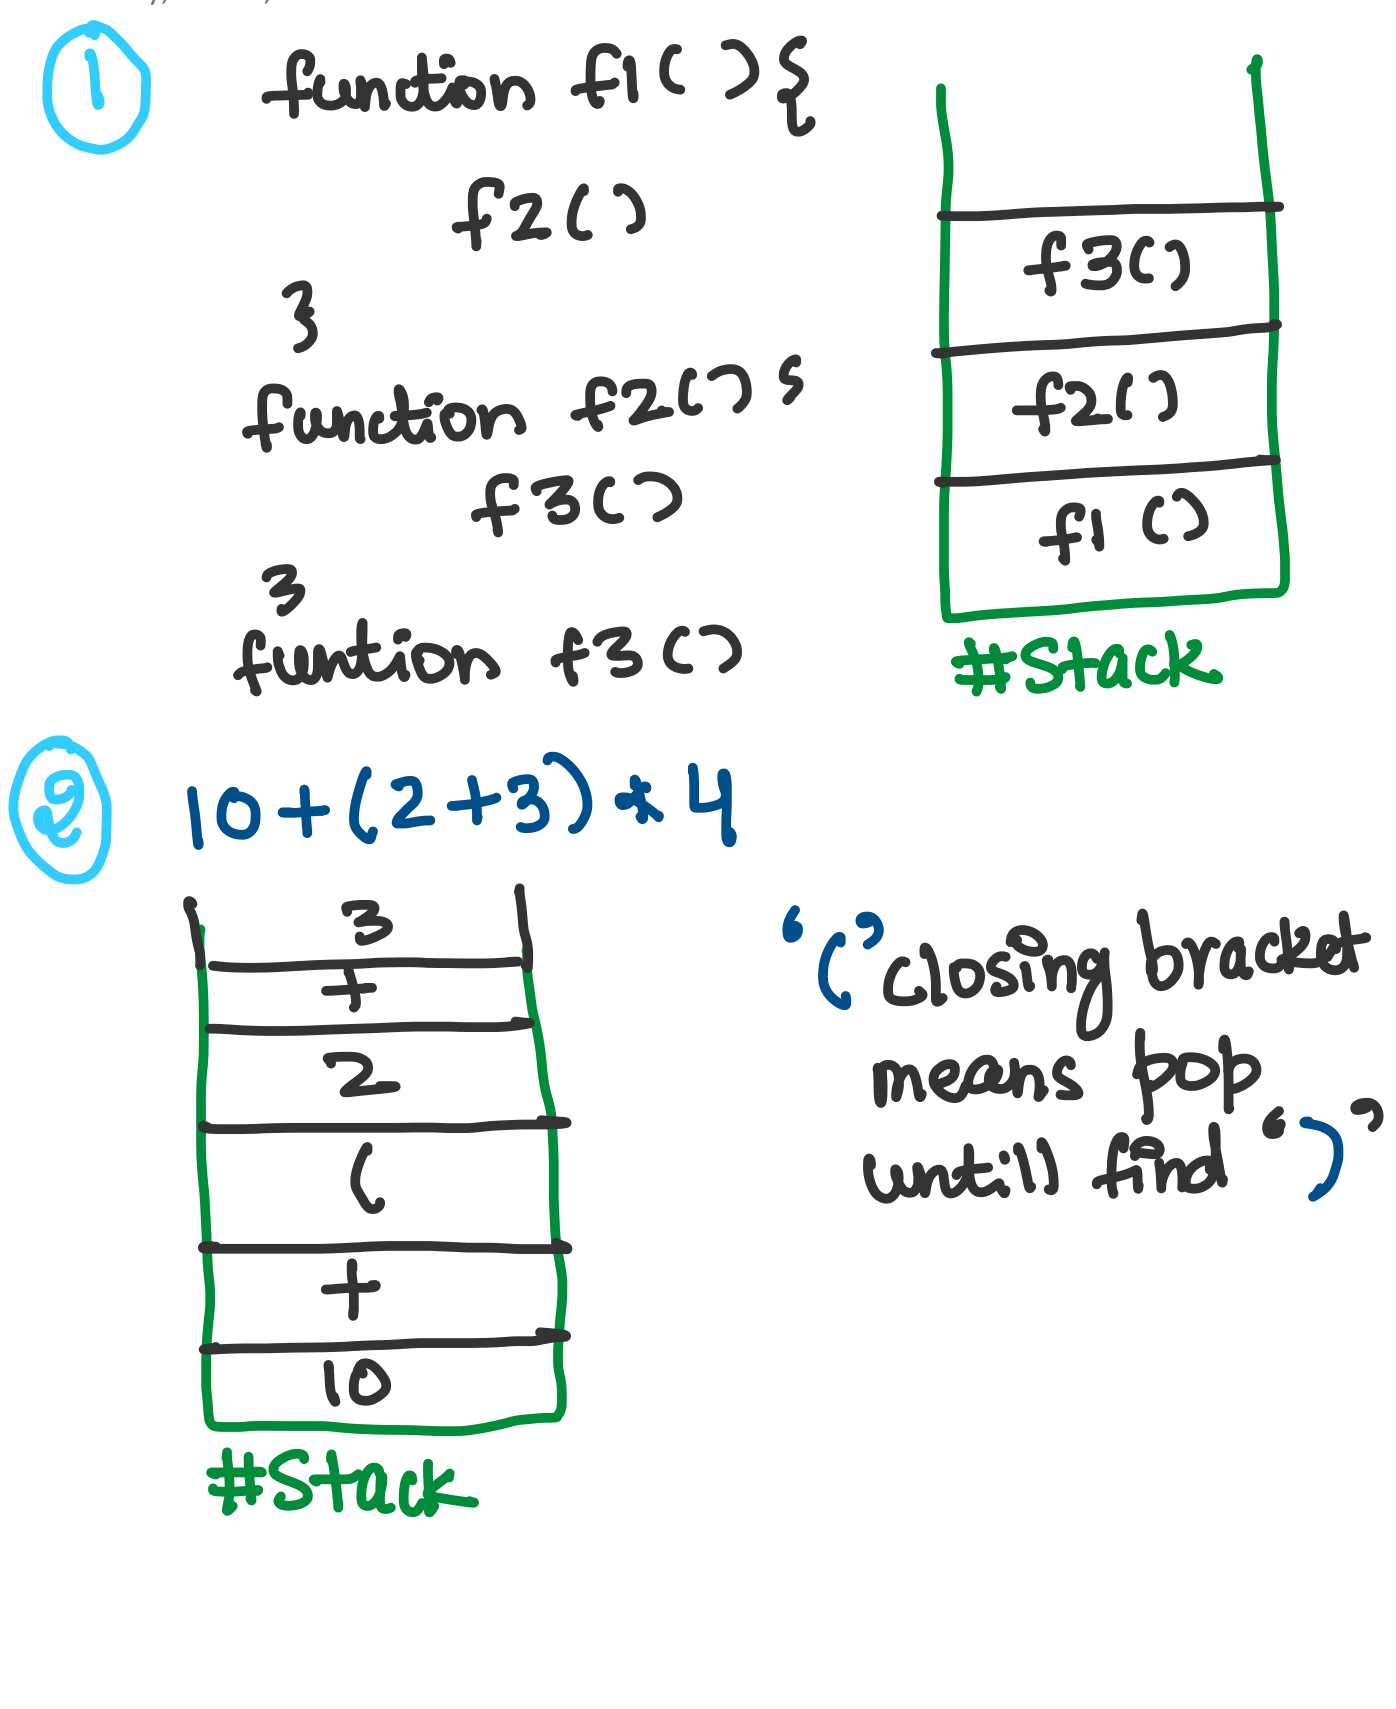 1
function f1(){
f2()
}
function f2(){
f3()
}
funtion f3()
f3()
f2()
f1()
#Stack
2
10+(2+3)*4
3
+
2
(
+
10
#Stack
‘(’ closing bracket
means pop
untill find ‘)’